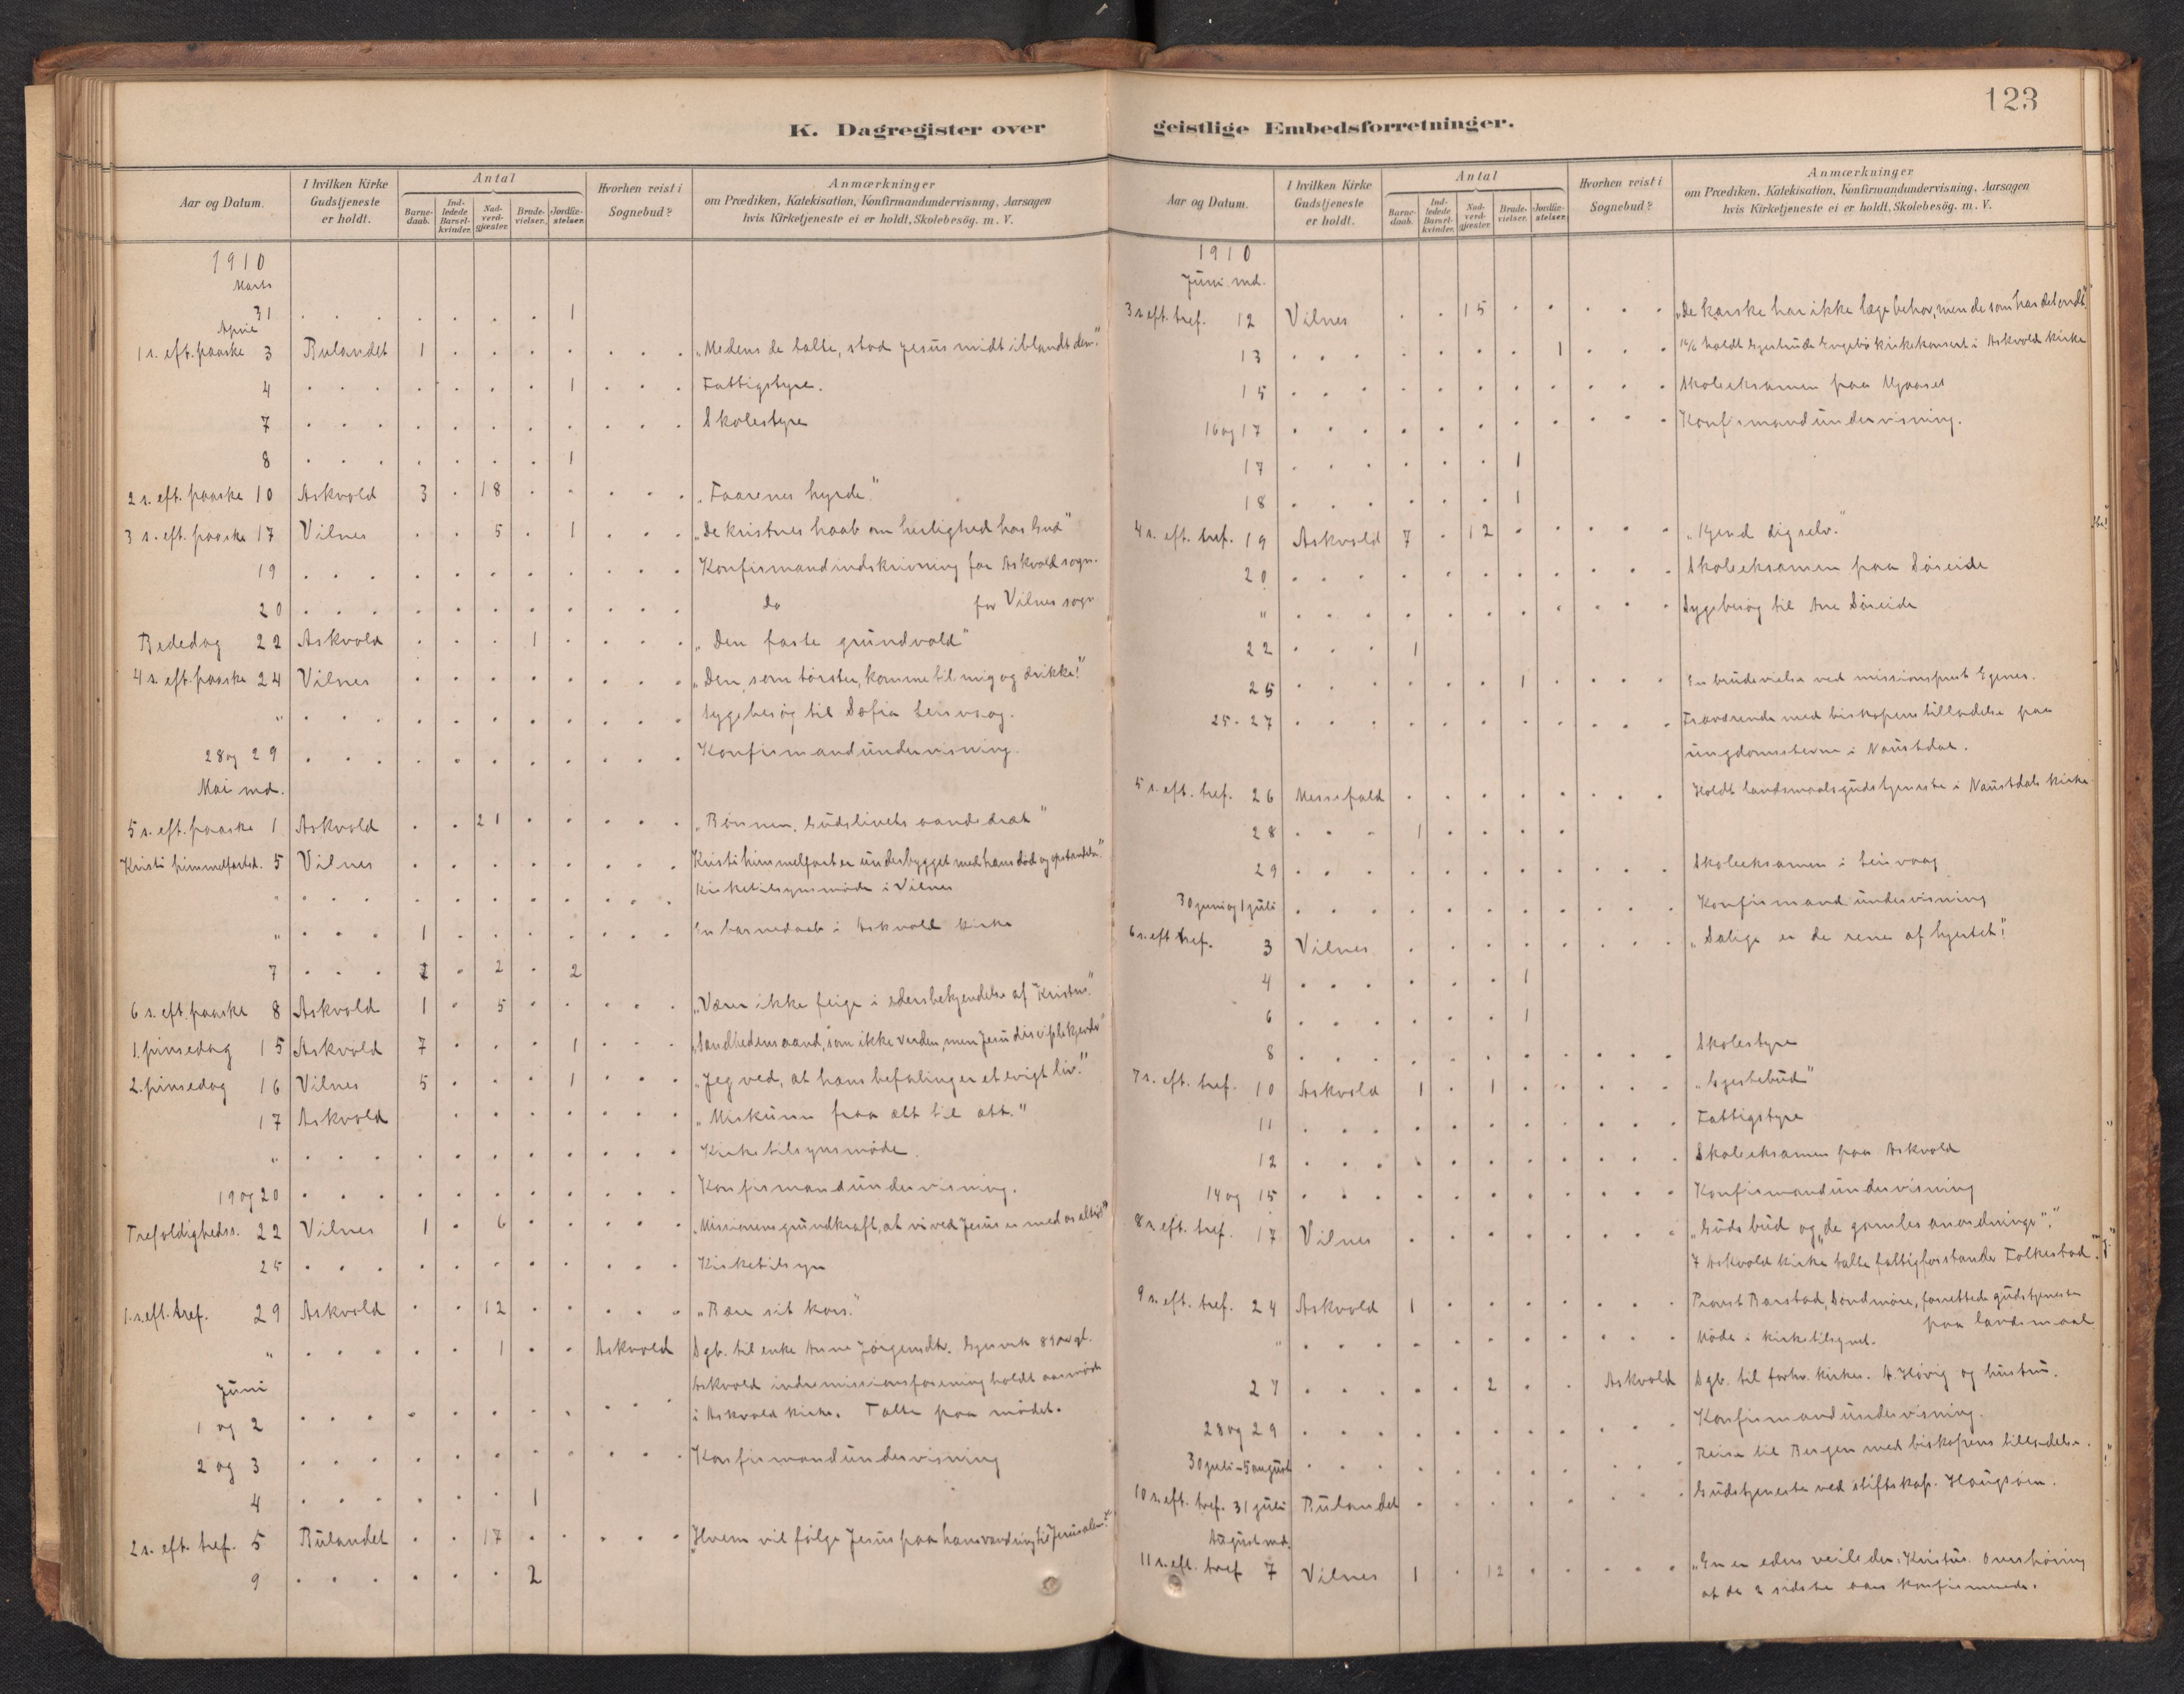 123
K. Dagregister over geistlige Embedsforretninger.
Aar og Datum.
I hvilken Kirke Gudstjeneste er holdt.
Antal
Barnedaab.
Indledede Barselkvinder.
Nadverdgjæster.
Brudevielser.
Jordfæstelser.
Hvorhen reist i Sognebud?
Anmærkninger
om Prædiken, Katekisation, Konfirmandundervisning, Aarsagen
hvis Kirketjeneste ei er holdt, Skolebesög. m. V.
1910
Marts
31 1
April
1 s. eft. paaske 3 Bulandet 1 „Medens de talte, stod Jesus midt iblandt dem."
4 1 Fattigstyre.
7 Skolestyre
8 1
2 s. eft. paaske 10 Askvold 3 18 „Faarenes hyrde."
3 s. eft. paaske 17 Vilnes 5 1 „De kristnes haab om herlighed hos Gud"
19 Konfirmandindskrivning for Askvold sogn.
20 do for Vilnes sogn
Bededag 22 Askvold 1 „Den faste grundvold"
4 s. eft. paaske 24 Vilnes „Den, som törster, komme til mig og drikke!"
" Sygebesög til Sofia Leirvaag.
28 og 29 Konfirmandundervisning.
Mai md.
5 s. eft. paaske 1 Askvold 21 „Bönnen, Gudslivets aandedræt"
Kristi himmelfartsd. 5 Vilnes Kristi himmelfart er underbygget med hans död og opstandelse."
" Kirketilsynsmöde i Vilnes
" 1 En barnedaab i Askvold kirke
7 1 2 2
6 s. eft. paaske 8 Askvold 1 5 „Vær ikke feige i eders bekjendelse af Kristus."
1. pinsedag 15 Askvold 7 1 „Sandhedens aand, som ikke verden, men Jesu disciple kjender"
2. pinsedag 16 Vilnes 5 1 „Jeg ved, at hans befaling er et evigt liv."
17 Askvold „Miskunn fraa ætt til ætt."
" Kirketilsynsmöde.
19 og 20 Konfirmandundervisning.
Trefoldighedss. 22 Vilnes 1 6 „Missionens grundkraft, at vi ved Jesus er med os altid"
25 Kirketilsyn
1. s. eft. tref. 29 Askvold 12 „Bære sit kors."
" 1 Askvold Sgb. til enke Anne Jörgensdtr. 89 aar gl.
Juni
1 og 2 Askvold indremissionsforening holdt aarsmöde
i Askvold kirke. Talte paa mödet.
2 og 3 Konfirmandundervisning
4 1
2 s. eft. tref. 5 Bulandet 17 „Hvem vil fölge Jesus paa hans vandring til Jerusalem?"
9 2
Aar og Datum.
I hvilken Kirke Gudstjeneste er holdt.
Antal
Barnedaab.
Indledede Barselkvinder.
Nadverdgjæster.
Brudevielser.
Jordfæstelser.
Hvorhen reist i Sognebud?
Anmærkninger
om Prædiken, Katekisation, Konfirmandundervisning, Aarsagen
hvis Kirketjeneste ei er holdt, Skolebesög. m. V.
1910
Juni md.
3 s. eft. tref. 12 Vilnes 15 „De karske har ikke læge behov, men de som har det ondt."
13 1 holdt Gjertrude Engebö kirkekonsert i Askvold kirke
15 Skoleeksamen paa
16 og 17 Konfirmandundervisning.
17 1
18 1
4 s. eft. tref. 19 Askvold 7 12 „Kjend dig selv."
20 Skoleeksamen paa Söreide
" Sygebesög til Ane Söreide
22 1
25 1 En brudevielse ved missionsprest Egenes.
25-27 Fraværende med biskopens tilladelse paa
ungdomsstevne i Naustdal.
5 s. eft. tref. 26 Messefald Holdt landsmaalsgudstjeneste i Naustdals kirke
28 1
29 Skoleeksamen i Leirvaag
30 juni og 1 juli Konfirmandundervisning
6 s. eft tref. 3 Vilnes „Salige er de rene af hjertet!"
4 1
6 1
8 Skolestyre
7 s. eft. tref. 10 Askvold 1 1 „Gjestebud"
11 Fattigstyre
12 Skoleeksamen paa Askvold
14 og 15 Konfirmandundervisning
8 s. eft. tref. 17 Vilnes „Guds bud og „de gamles anordninger"."
I Askvold kirke talte fattigforstander Folkestad.
9 s. eft. tref. 24 Askvold 1 Provst Barstad, Söndmöre, forrettede gudstjeneste
paa landsmaal.
" Möde i kirketilsynet.
27 2 Askvold Sgb. til forhv. kirkes. A. Hövig og hustru.
28 og 29 Konfirmandundervisning.
30 juli-5 august Reise til Bergen med biskopens tilladelse.
10 s. eft. tref. 31 juli Bulandet Gudstjeneste ved stiftskap. Haugsöen.
August md.
11 s. eft. tref 7 Vilnes 1 12 „En er eders veileder: Kristus. Overhöring
af de 2 sidste aars konfirmerede.